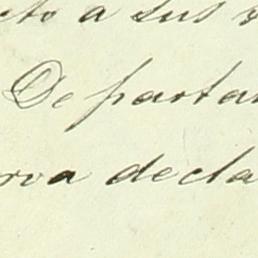 cto a sus
Departa
rva decla